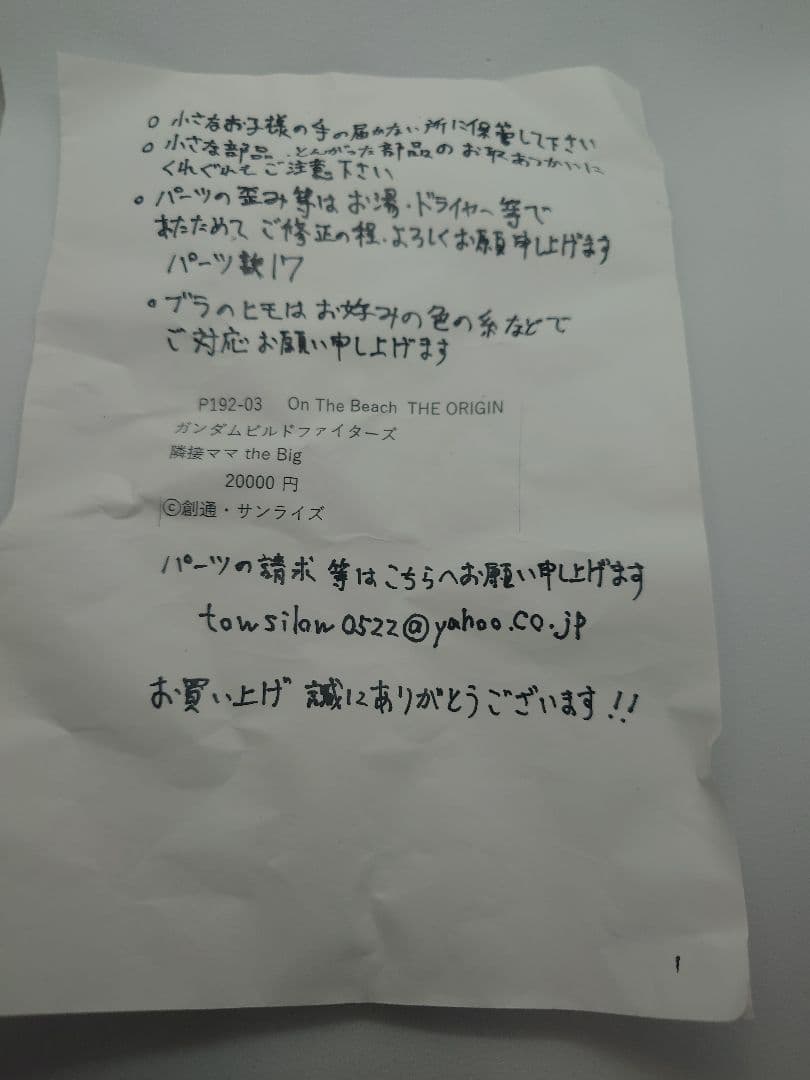 ○ 小さなお子様の手の届かない所に保管して下さい
○ 小さな部品、とんがった部品のお取あつかいに
くれぐれもご注意下さい
• パーツの歪み等はお湯・ドライヤー等で
あたためてご修正の程、よろしくお願申し上げます
パーツ数17
• ブラのヒモはお好みの色の糸などで
ご対応お願い申し上げます
P192-03 On The Beach THE ORIGIN
ガンダムビルドファイターズ
隣接ママ the Big
20000 円
©創通・サンライズ
パーツの請求等はこちらへお願い申し上げます
towsilow0522@yahoo.co.jp
お買い上げ 誠にありがとうございます!!
1